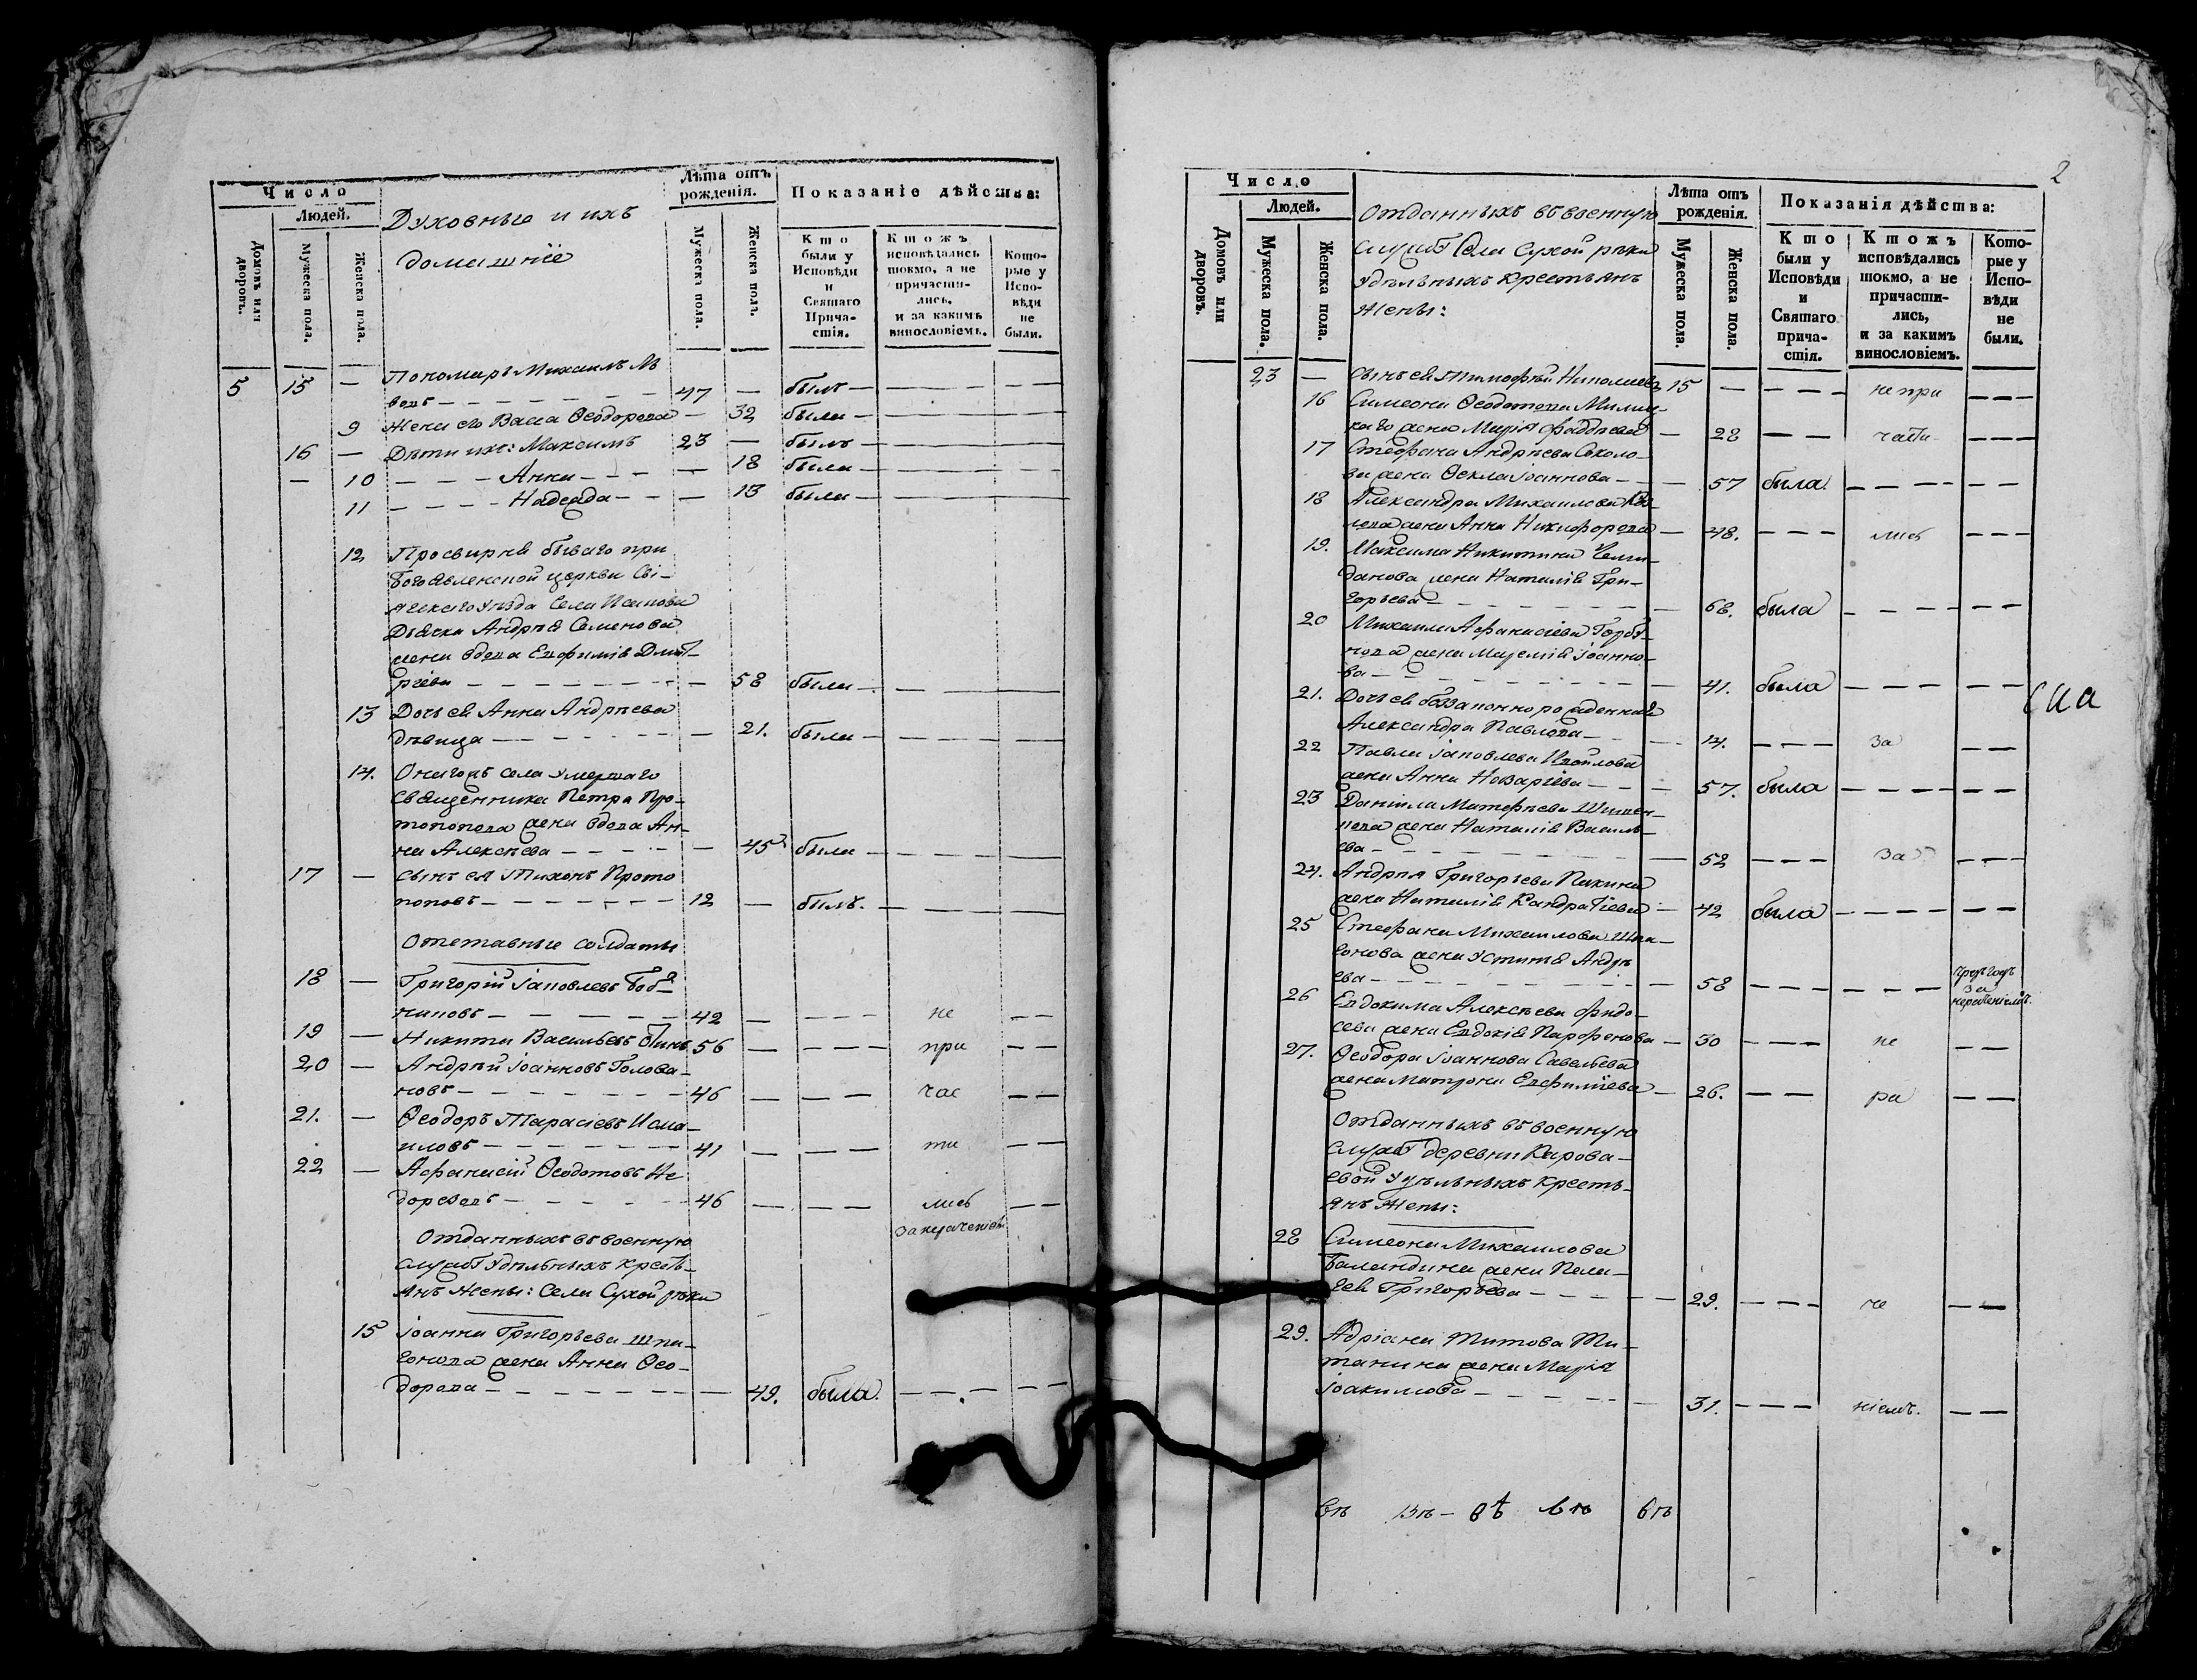 Число
Людей.
Домовъ или дворовъ.
Мужеска пола.
Женска пола.
Духовные и ихъ
домашнїе
Лѣта отъ рожденія.
Мужеска пола.
Женска пола.
Показаніе дѣйства:
Кто были у Исповѣди и Святаго Прича-стія.
Ктожъ исповѣдались токмо, а не причасти-лись, и за какимъ винословіемъ.
Кото-рые у Испо-вѣди не были.
5 15 — Пономарь Михаилъ
47 — былъ — — — —
9 Жена его Васса Ѳеодорова — 32 была — — —
16 — Дѣти ихъ: Максимъ 23 — былъ — — —
— 10 — — — Анна — — — — 18 была — — —
11 — — — — Надежда — — — 13 была — — —
12 Просвирня бываго при
Богоявленской церкви
уѣзда села
Дьячка Андрея Семенова
жена вдова Евфимія Дмит-
рiева — — — — — — — 58 была — — —
13 Дочь ея Анна Андреева
дѣвица — — — — — — 21. была — — — —
14. Онагожъ села умершаго
священника Петра Про-
топопова жена вдова Ан-
на Алексѣева — — — — — 45 была — — — —
17 — Сынъ ея Тихонъ Прото
поповъ — — — — — — 12 — былъ. — — — —
Отставные солдаты
18 — Григорій Іаковлевъ
42 — — — — не — —
19 — Никита Васильевъ 56 — — — — при — —
20 — Андрей Іоанновъ Голова-
новъ — — — — — — 46 — — — — час — —
21. — Ѳеодоръ Тарасіевъ Исма-
иловъ — — — — — — 41 — — — — ти — —
22 — Афанасій Ѳеодотовъ Не
46 — — — — лись — —
Отданныхъ въ военную
службу удѣльныхъ кресть-
янъ жены: Села Сухой рѣки
15 Іоанна Григорьева Шпа-
гонова жена Анна Ѳео-
дорова — — — — — — — 49. была. — — — — —
2
Число
Людей.
Домовъ или дворовъ.
Мужеска пола.
Женска пола.
Отданныхъ въ военную
службу Села Сухой рѣки
Удѣльныхъ крестьянъ
жены:
Лѣта отъ рожденія.
Мужеска пола.
Женска пола.
Показанія дѣйства:
Кто были у Исповѣди и Святаго прича-стія.
Ктожъ исповѣдались токмо, а не причасти-лись, и за какимъ винословіемъ.
Кото-рые у Испо-вѣди не были.
23 — Сынъ ея Тимофей 15 — — — — не при — — —
16 Симеона Ѳеодотова
жена Марія Фаддѣева — 28 — — части — — —
17 Стефана Андреева Соколо-
ва жена Ѳекла Іоаннова — — 57 была. — — — — — —
18 Александра Михаилова
жена Анна Никифорова — 48. — — — лись — — —
19. Максима Никитина Чема-
данова жена Наталія Гри-
горьева — — — — — — 68. была — — — — — —
20 Михаила Афанасіева Горбу-
нова жена Іоанно-
ва — — — — — — 41. была — — — — — —
21. Дочь ея беззаконнорожденная
Александра Павлова — — — 14. — — — за — —
22 Павла Іаковлева
жена Анна Назаріева — — — 57. была — — — — — —
23 Даніила Матфеева
жена Наталія Василь-
ева — — — — — — 52 — — — за — — —
24. Андрея Григорьева Пикина
жена Наталія Кандратіева — 42 была — — — — — —
25 Стефана Михаилова Шпа-
гонова жена Устинья Андре
ева — — — — — — 58 — — — — — — за нераденіемъ.
26 Евдокима Алексѣева Фидо-
сева жена Евдокія Парфенова — 30 — — — не — —
27. Ѳеодора Іоаннова Савельева
жена Матрона Евфиміева — 26. — — ра — —
Отданныхъ въ военную
службу деревни Карова-
евой удѣльныхъ кресть-
янъ жены:
28 Симеона Михаилова
Баландина жена Пела-
гея Григорьева — — — — — 29. — — — де — —
29. Адріана Титова Ти-
танина жена Марія
Іоакимова — — — — — 31. — — — ніемъ. — —